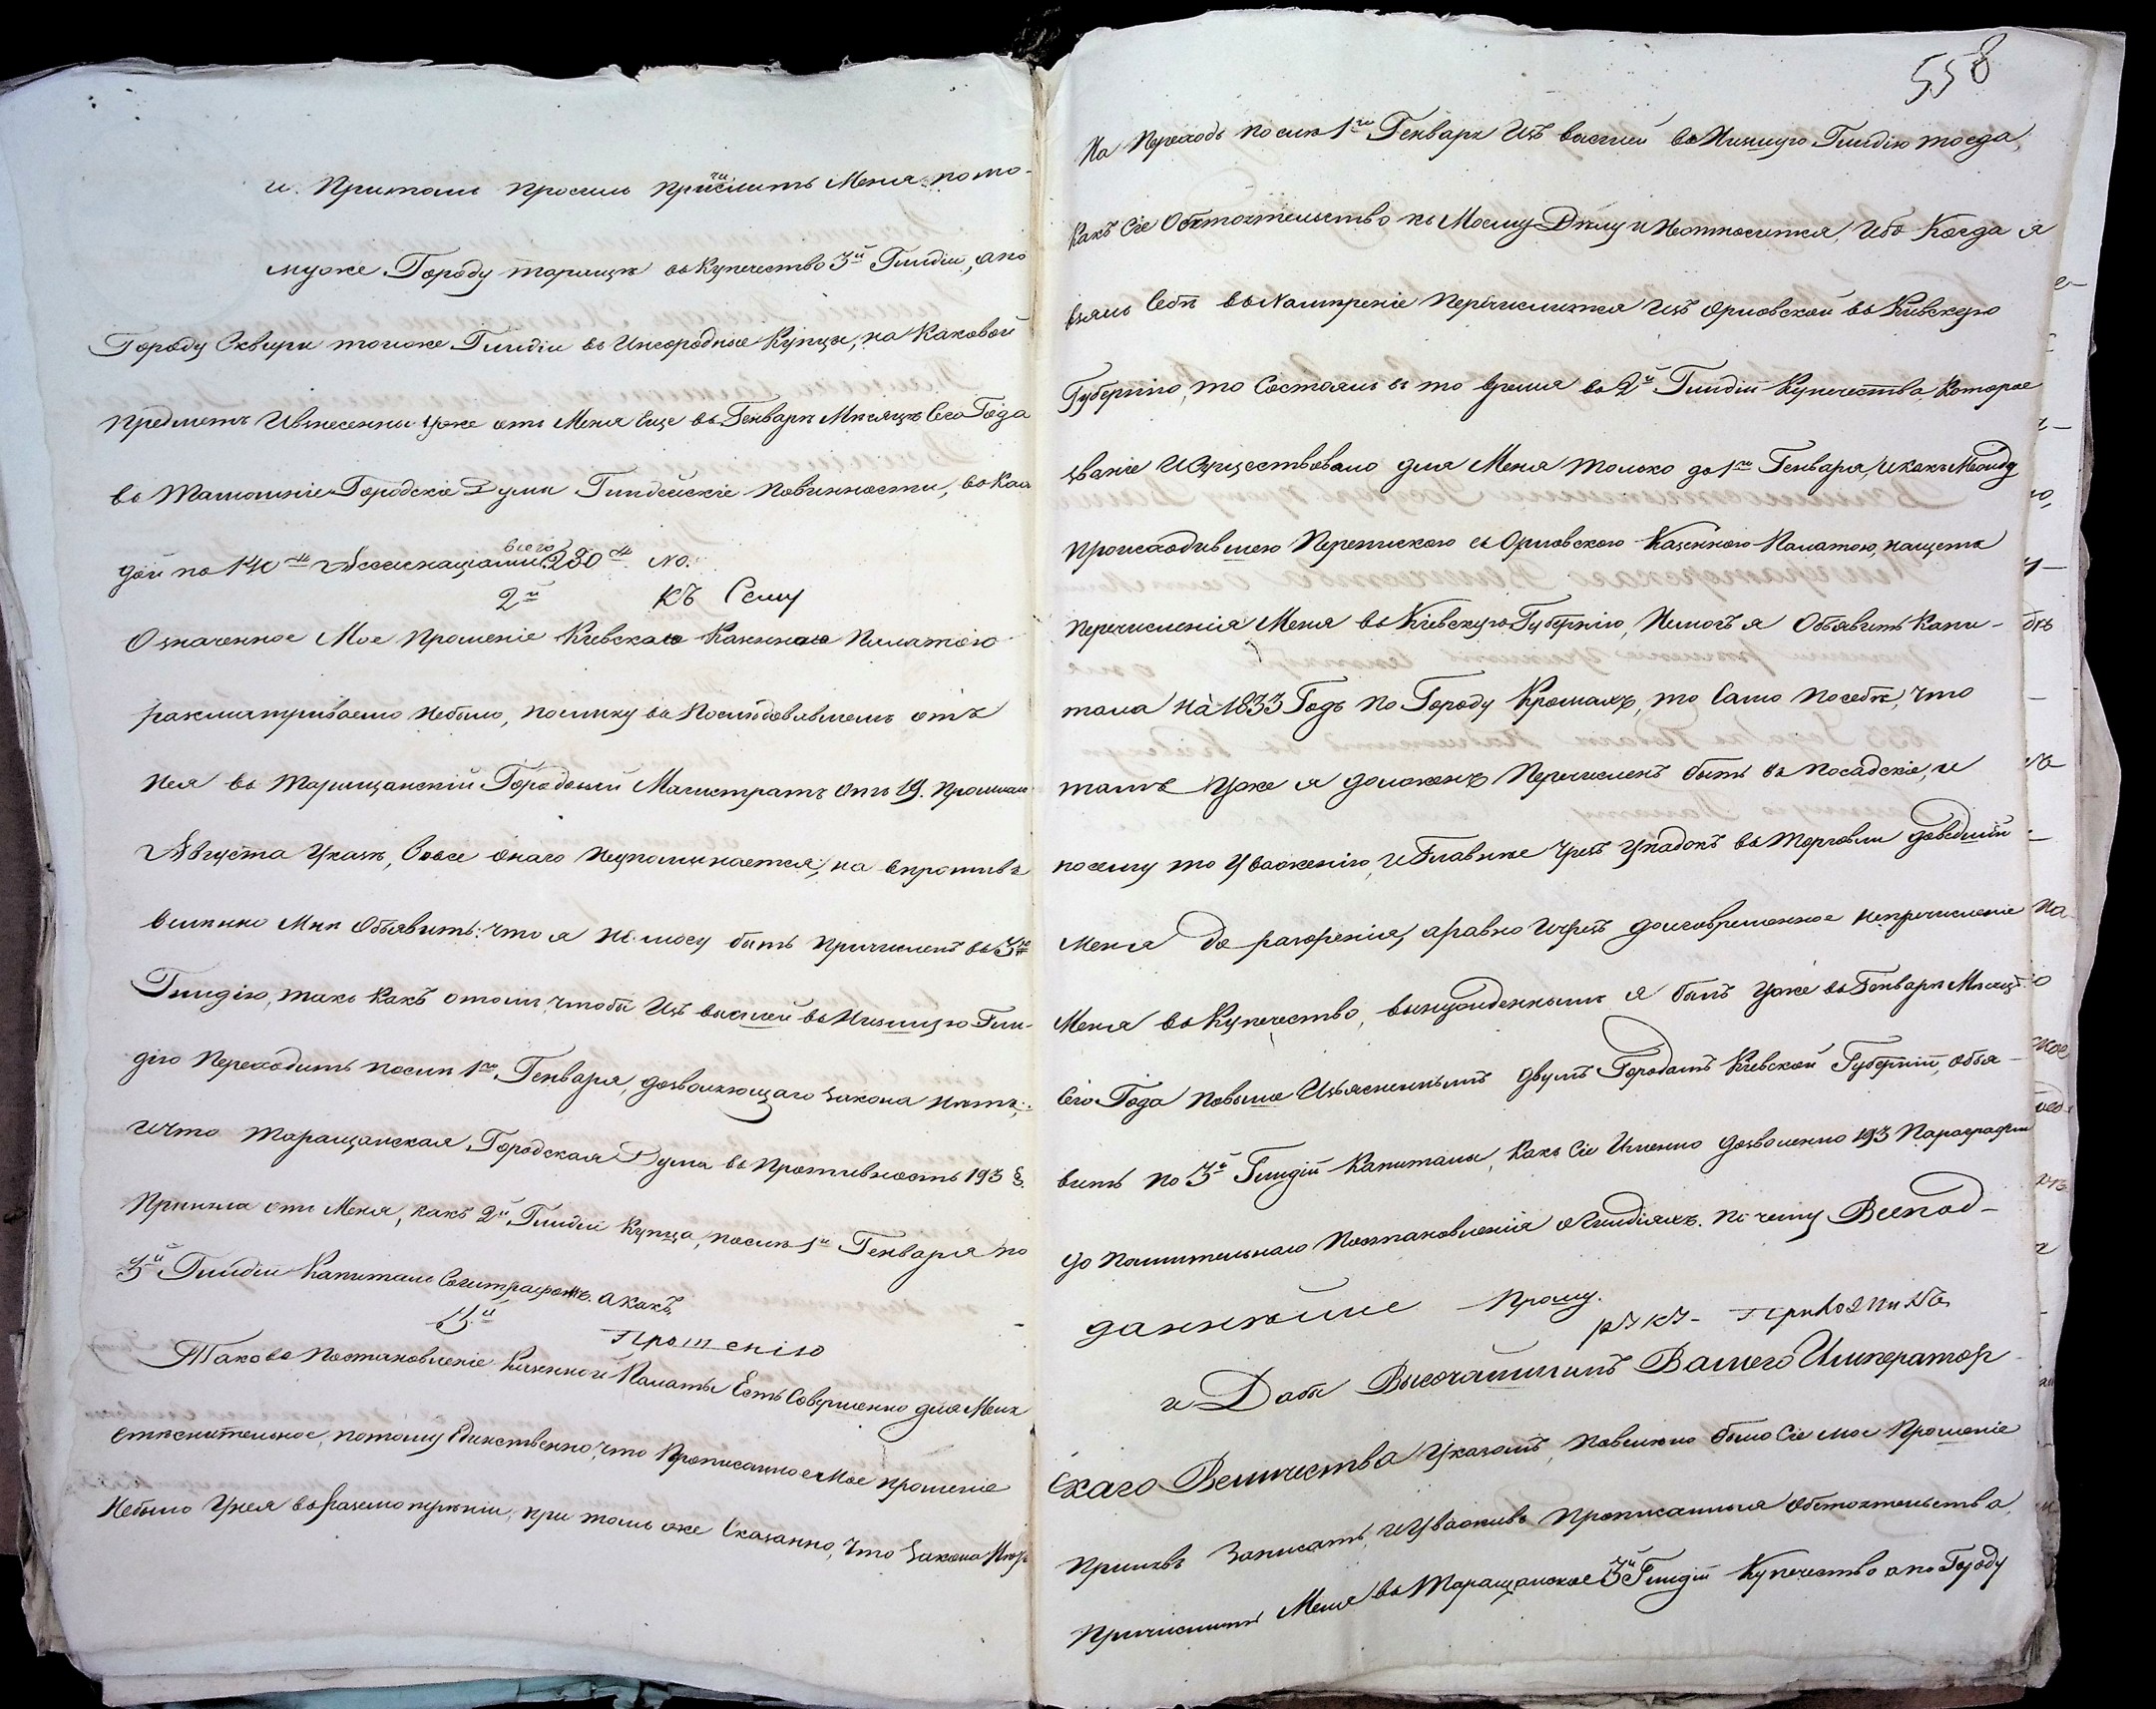 и притомъ просилъ причислить меня по то-
муже Городу Таращѣ въ купечество 3й Гильдіи, а по
Городу Сквири тоиже Гильдіи въ Иногродные Купцы, на каковой
предметъ Ивзнесенны уже отъ Меня Еще въ Генварѣ Мѣсяцѣ сего Года
въ Тамошніе Городскіе Думы Гильдейскіе повинности, въ каж
дой по 140 ти Ассигнаціями всего 280 ти. Но.
2й Къ Сему
Означенное Мое прошеніе Кіевскою Казенною Палатою
разсматриваемо небыло, поелику въ последовавшемъ отъ
Нея въ Таращанскій Городовый Магистратъ отъ 19. прошлаго
Августа Указѣ, вовсе онаго неупоминается, на впротивъ
велено Мнѣ объявить: что я не могу быть причисленъ въ 3ю
Гильдію, такъ какъ отомъ, чтобы Изъ высшей въ Низшую Гиль-
дію Переходить послѣ 1го Генваря, дозволяющаго закона нѣтъ;
Ичто Таращанская Городская Дума въ противность 193 §.
Приняла отъ Меня, какъ 2й Гильдіи купца, послѣ 1го Генваря по
3й Гильдіи Капиталъ Сосштрафомъ. а какъ
3.й
Прошенію
Таково Постановленіе Казенной Палаты Есть Совершенно для Меня
стѣснительное, потому Единственно, что прописанное Мое прошеніе
Небыло Унея въ разсмотреніи, при томъ же Сказанно, что Закона Нѣтъ
558
На Переходъ послѣ 1го Генваря Изъ высшей въ Низшую Гильдію тогда,
какъ Сіе Обстоятельство къ Моему Дѣлу и Неотносится, Ибо Когда я
взялъ Себѣ въ Намѣреніе перечислится Изъ Орловской въ Кіевскую
Губернію, то Состоялъ въ то время во 2й Гильдіи Купечества, Которое
званіе Исуществовало для Меня только до 1го Генваря, Икакъ Между
происходившею Перепискою съ Орловскою Казенною Палатою, насчетъ
перечисленія Меня въ Кіевскую Губернію, Немогъ я Объявить Капи-
тала на 1833 Годъ по Городу Кромахъ, то Само посебѣ, что
тамъ Уже я долженъ Перечисленъ быть въ Посадскіе, и
посему то Уваженію, и Главнѣе чрезъ упадокъ въ торговли доведшій
Меня до разоренія, аравно Ичрезъ долговременное непричисленіе
Меня въ Купечество, вынужденнымъ я былъ Уже въ Генварѣ Мѣсяцѣ
Сего Года повыше Изъясненнымъ двумъ Городамъ Кіевской Губерніи, объя-
вить по 3й Гильдіи Капиталы, Какъ Сіе Именно дозволенно 193 Параграфом
до полнительнаго Постановленія о Гильдіяхъ. по чему Всепод-
даннѣйше Прошу.
и Дабы Высочайшимъ Вашего Император
скаго Величества Указомъ, повелено было Сіе мое Прошеніе
принявъ Записать, и Уваживъ Прописанныя обстоятельства,
причислить Меня въ Таращанское 3й Гильдіи Купечество а по Городу